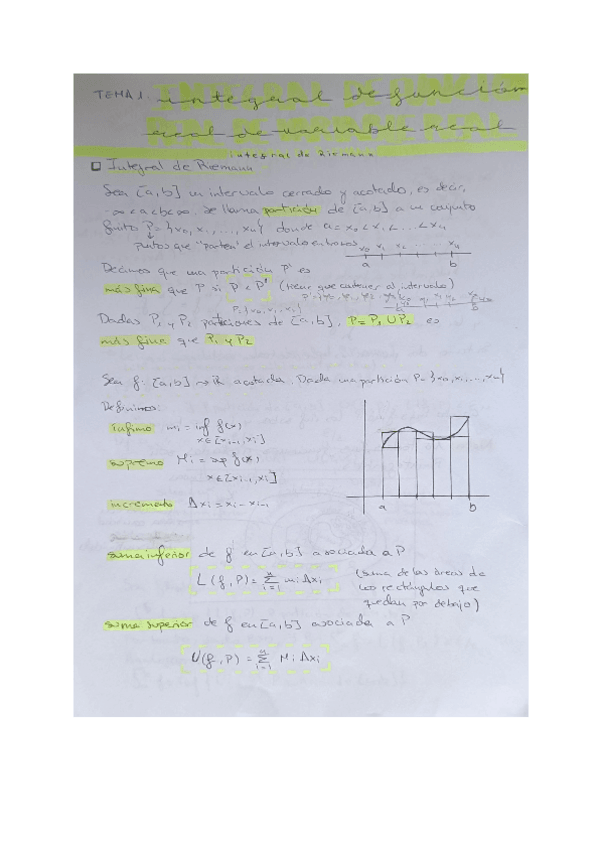 TEMA 1. integral de función
real de variable real
integral de Riemann
Integral de Riemann
Sea [a,b] un intervalo cerrado y acotado, es decir,
-∞<a<b<∞. Se llama partición de [a,b] a un conjunto
finito P={x₀, x₁, ..., xₙ} donde a=x₀<x₁<...<xₙ
puntos que "parten" el intervalo en trozos
x₀ x₁ x₂ ..... xₙ
a b
Decimos que una partición P' es
más fina que P si P ⊂ P' (tiene que contener al intervalo)
Dadas P₁ y P₂ particiones de [a,b], P=P₁∪P₂ es
más fina que P₁ y P₂
Sea f: [a,b] → ℝ acotada. Dada una partición P={x₀,x₁,...,xₙ}
Definimos:
ínfimo mᵢ = inf f(x)
x∈[xᵢ₋₁,xᵢ]
supremo Mᵢ = sup f(x)
x∈[xᵢ₋₁,xᵢ]
incremento Δxᵢ = xᵢ - xᵢ₋₁
a b
suma inferior de f en [a,b] asociada a P
L(f,P) = Σⁿᵢ₌₁ mᵢ Δxᵢ
(suma de las áreas de
los rectángulos que
quedan por debajo)
suma superior de f en [a,b] asociada a P
U(f,P) = Σⁿᵢ₌₁ Mᵢ Δxᵢ